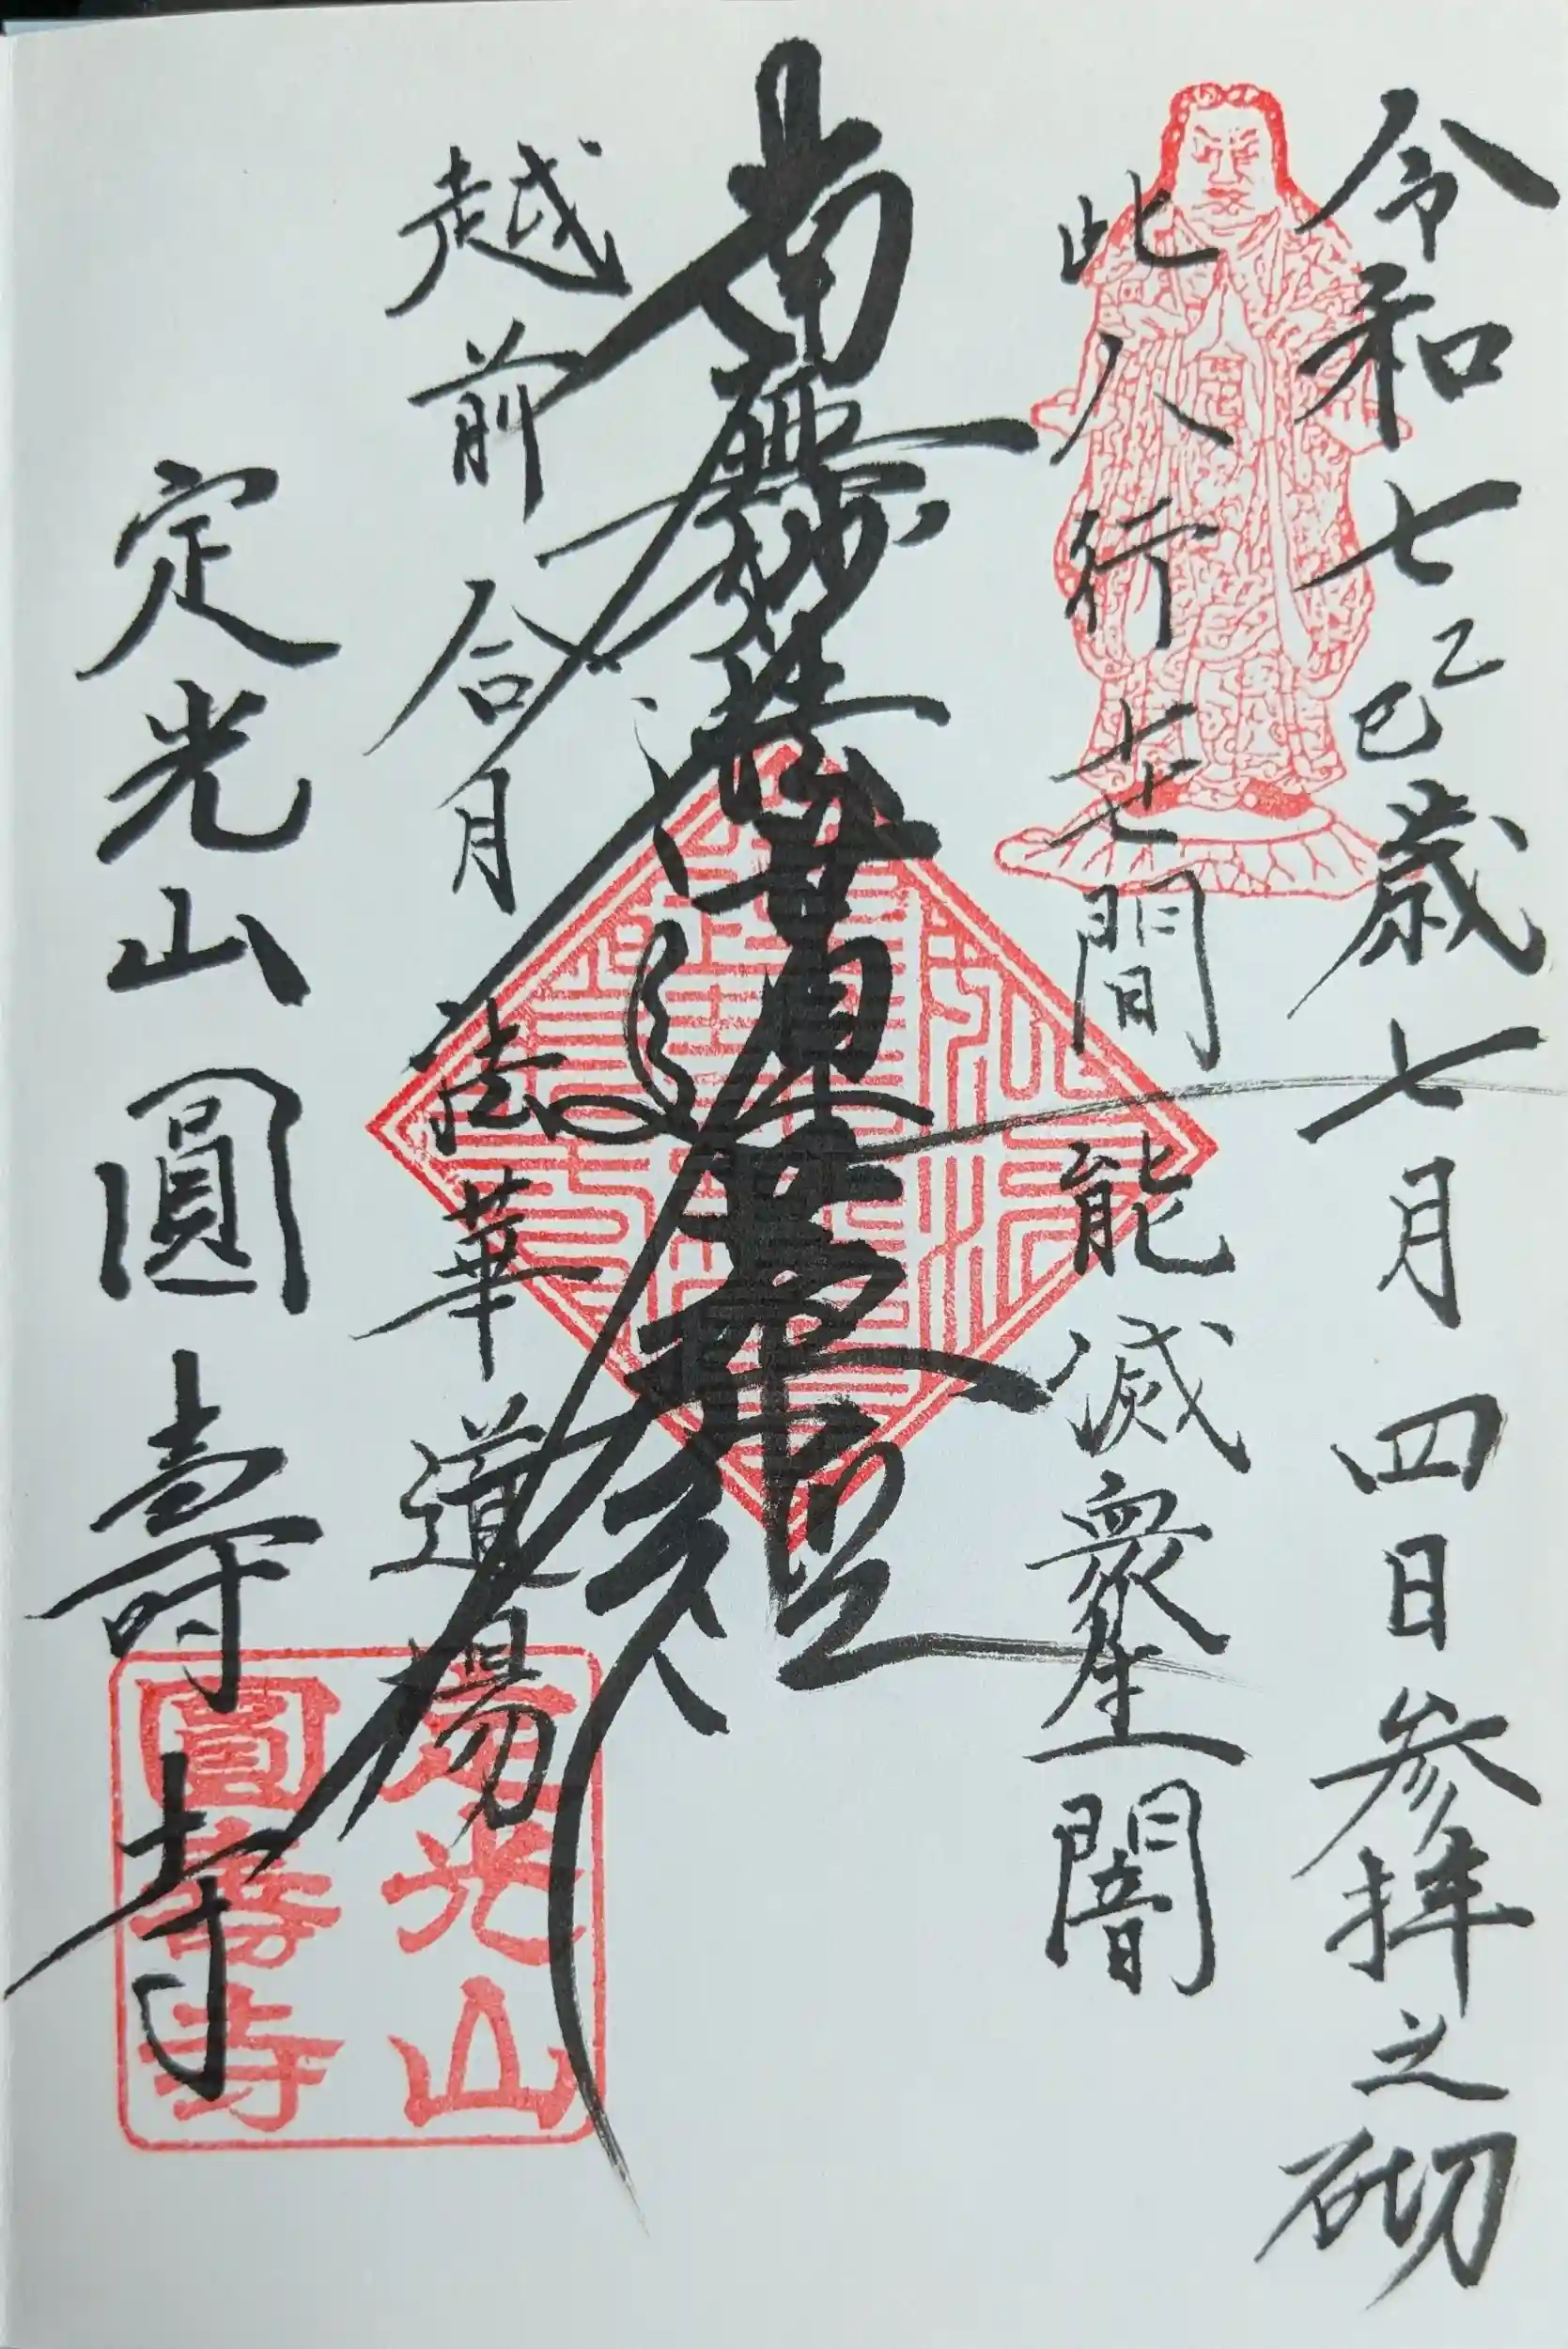 令和七乙巳歳七月四日参拝之砌
此人行世間能滅衆生闇
南無妙法蓮華経
越前合月法華道場
定光山圓壽寺
定光山
圓壽寺